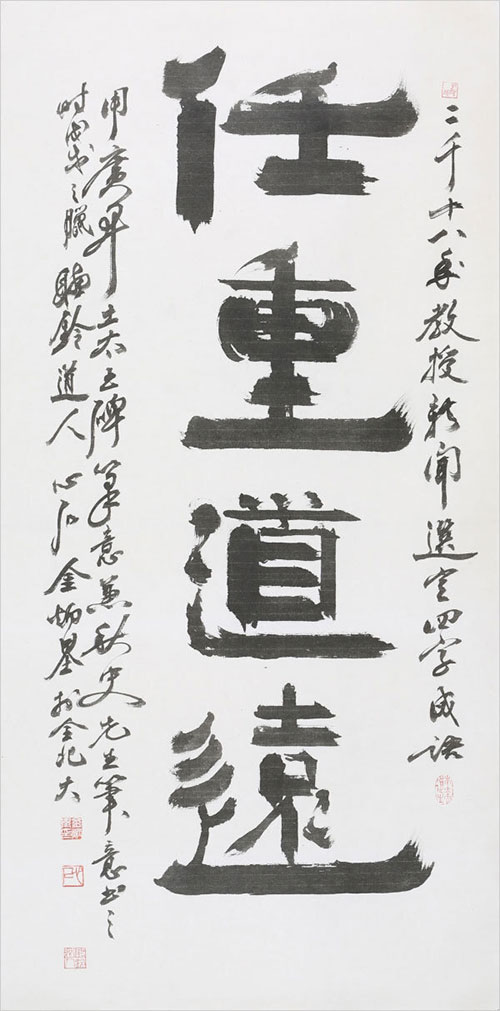 二千十八年教授新聞選定四字成語
任重道遠
用廣開土太王碑筆意兼秋史先生筆意書之
時戊戌之臘聽鈴道人心石金炳基於全北大